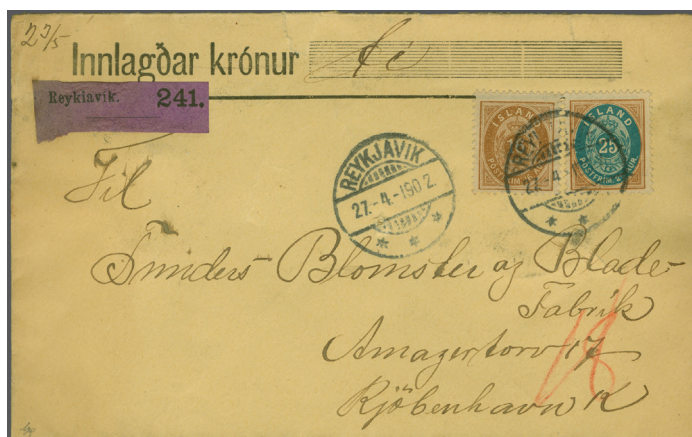 2 3/5
Innlagðar krónur
Reykiavik. 241.
ÍSLAND
ÍSLAND
25
REYKJAVIK
27.-4.-1902.
Til
Blomster og Blade-
Fabrik
Amagertorv 17
Kjöbenhavn K
18